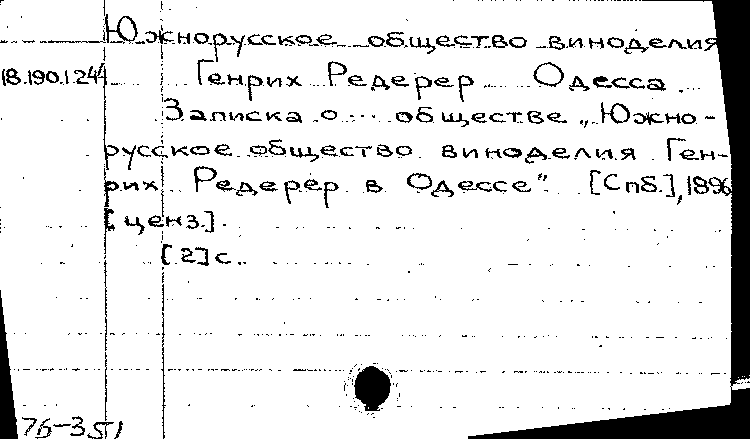 Южнорусское общество виноделия
18.190.1.244 Генрих Редерер Одесса.
Записка о ... обществе „Южно-
русское общество виноделия Ген-
рих Редерер в Одессе". [Спб.], 1896
[ценз.].
[2] с.
76-351